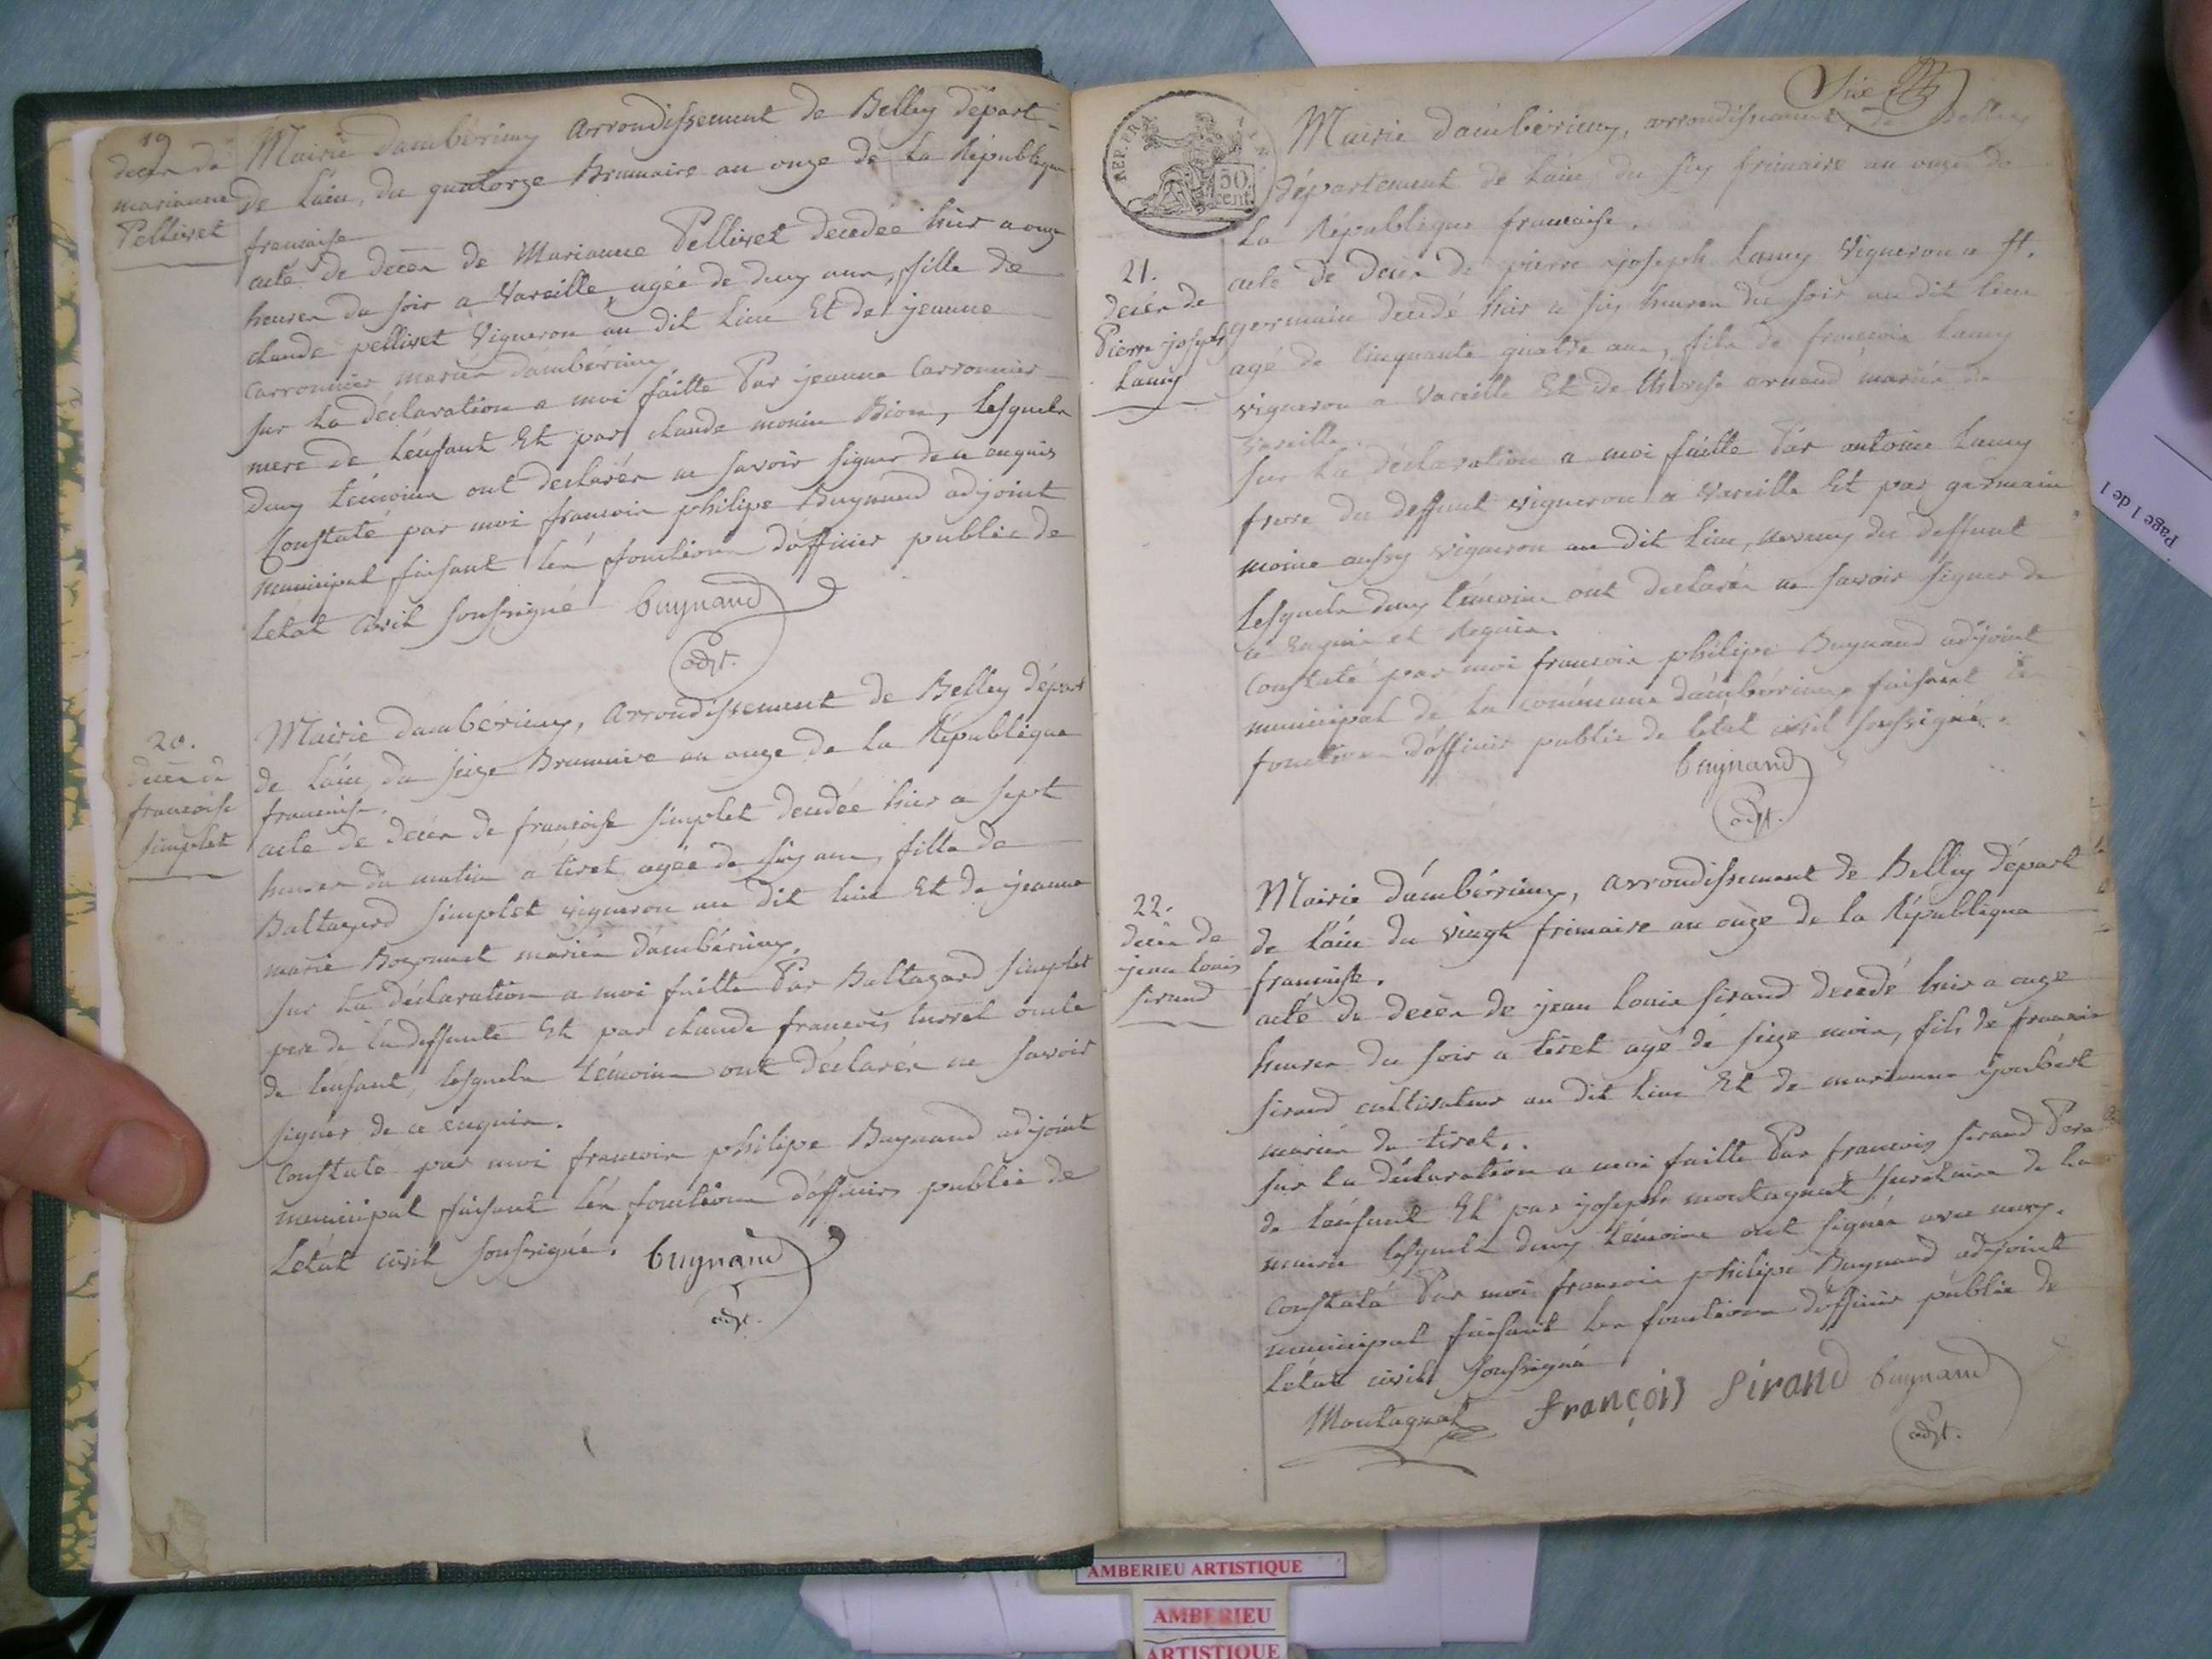 19
decès de
marianne
Pellivet
Mairie dambérieux arrondissement de Belley départ-
de lain, du quatorze Brumaire an onze de la République
francaise
acte de decès de Marianne Pellivet decedée hier a onze
heures du soir a Vareille agée de deux ans, fille de
claude pellivet Vigneron au dit lieu Et de jeanne
Carronnier mariés dambérieux
sur la déclaration a moi faitte Par jeanne Carronnier
mere de l'enfant Et par claude monin Bion, lesquels
deux témoins ont declarés ne savoir signer de ce enquis
Constaté par moi francois philipe Buynand adjoint
municipal faisant les fonctions d'officier public de
létat civil soussigné buynand
adjt.
20.
decès de
francoise
simplet
Mairie dambérieux, arrondissement de Belley départ
de lain, du seize Brumaire an onze de la République
francaise.
acte de decès de francoise simplet decedée hier a sept
heures du matin a tiret agée de six ans, fille de
Baltazard simplet vigneron au dit lieu Et de jeanne
marie Bozonnet mariés dambérieux.
sur la déclaration a moi faitte Par Baltazard simplet
pere de la deffunte Et par claude francois oncle
de lenfant, lesquels témoins ont déclarés ne savoir
signer de ce enquis.
Constaté par moi francois philipe Buynand adjoint
municipal faisant les fonctions d'officier public de
Létat civil soussigné. buynand
adjt.
Six
REP. FRA.
50
cent.
Mairie dambérieux, arrondissement de Belley
département de lain, du six frimaire an onze de
la République francaise.
21.
decès de
Pierre joseph
Lamy
acte de decès de pierre joseph Lamy Vigneron a st.
germain decedé hier a six heures du soir au dit lieu
agé de cinquante quatre ans, fils de francois Lamy
vigneron a Vareille Et de therese arnaud mariés de
vareille.
sur la déclaration a moi faitte Par antoine Lamy
frere du deffunt vigneron a Vareille Et par germain
moine aussy vigneron au dit lieu, neveux du deffunt
Lesquels deux témoins ont declarés ne savoir signer de
ce Enquis et Requis.
Constaté par moi francois philipe Buynand adjoint
municipal de la commune dambérieux faisant les
fonctions d'officier public de létat civil soussigné.
buynand
adjt.
22.
decès de
jean Louis
sirand
Mairie dambérieux, arrondissement de Belley départ
de lain du vingt frimaire an onze de la République
francaise.
acte de decès de jean Louis sirand decedé hier a onze
heures du soir a tiret agé de seize mois, fils de francois
sirand cultivateur au dit lieu Et de marianne joubert
mariés de tiret.
sur la déclaration a moi faitte Par francois sirand Pere
de lenfant Et par joseph montagnat secretaire de la
mairie lesquels deux témoins ont signés avec nous.
Constaté Par moi francois philipe Buynand adjoint
municipal faisant les fonctions d'officier public de
Létat civil soussigné
Montagnat françois Sirand buynand
adjt.
Page 1 de 1
AMBERIEU ARTISTIQUE
AMBERIEU
ARTISTIQUE